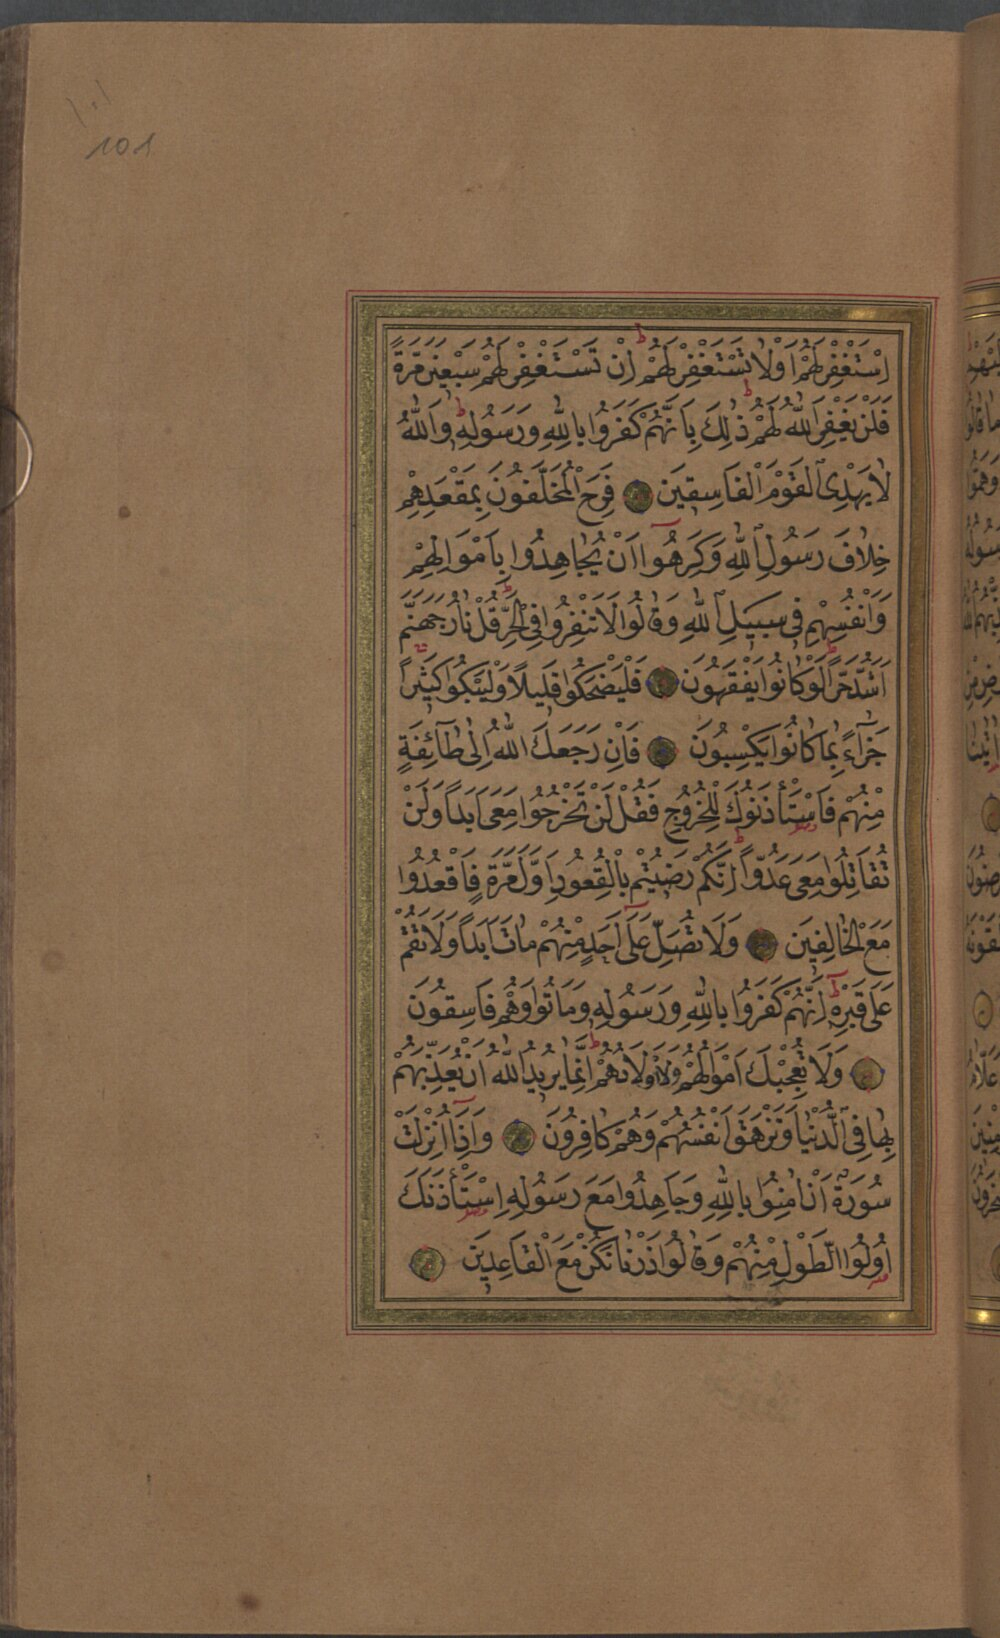 ١٠١
101
اِسْتَغْفِرْ لَهُمْ اَوْ لَا تَسْتَغْفِرْ لَهُمْ اِنْ تَسْتَغْفِرْ لَهُمْ سَبْعِينَ مَرَّةً
فَلَنْ يَغْفِرَ اللّٰهُ لَهُمْ ذٰلِكَ بِاَنَّهُمْ كَفَرُوا بِاللّٰهِ وَرَسُولِهِ وَاللّٰهُ
لَا يَهْدِى الْقَوْمَ الْفَاسِقِينَ فَرِحَ الْمُخَلَّفُونَ بِمَقْعَدِهِمْ
خِلَافَ رَسُولِ اللّٰهِ وَكَرِهُوا اَنْ يُجَاهِدُوا بِاَمْوَالِهِمْ
وَاَنْفُسِهِمْ فِى سَبِيلِ اللّٰهِ وَقَالُوا لَا تَنْفِرُوا فِى الْحَرِّ قُلْ نَارُ جَهَنَّمَ
اَشَدُّ حَرًّا لَوْ كَانُوا يَفْقَهُونَ فَلْيَضْحَكُوا قَلِيلًا وَلْيَبْكُوا كَثِيرًا
جَزَآءً بِمَا كَانُوا يَكْسِبُونَ فَاِنْ رَجَعَكَ اللّٰهُ اِلٰى طَآئِفَةٍ
مِنْهُمْ فَاسْتَأْذَنُوكَ لِلْخُرُوجِ فَقُلْ لَنْ تَخْرُجُوا مَعِىَ اَبَدًا وَلَنْ
تُقَاتِلُوا مَعِىَ عَدُوًّا اِنَّكُمْ رَضِيتُمْ بِالْقُعُودِ اَوَّلَ مَرَّةٍ فَاقْعُدُوا
مَعَ الْخَالِفِينَ وَلَا تُصَلِّ عَلٰٓى اَحَدٍ مِنْهُمْ مَاتَ اَبَدًا وَلَا تَقُمْ
عَلٰى قَبْرِهِ اِنَّهُمْ كَفَرُوا بِاللّٰهِ وَرَسُولِهِ وَمَاتُوا وَهُمْ فَاسِقُونَ
وَلَا تُعْجِبْكَ اَمْوَالُهُمْ وَاَوْلَادُهُمْ اِنَّمَا يُرِيدُ اللّٰهُ اَنْ يُعَذِّبَهُمْ
بِهَا فِى الدُّنْيَا وَتَزْهَقَ اَنْفُسُهُمْ وَهُمْ كَافِرُونَ وَاِذَآ اُنْزِلَتْ
سُورَةٌ اَنْ اٰمِنُوا بِاللّٰهِ وَجَاهِدُوا مَعَ رَسُولِهِ اِسْتَأْذَنَكَ
اُولُوا الطَّوْلِ مِنْهُمْ وَقَالُوا ذَرْنَا نَكُنْ مَعَ الْقَاعِدِينَ